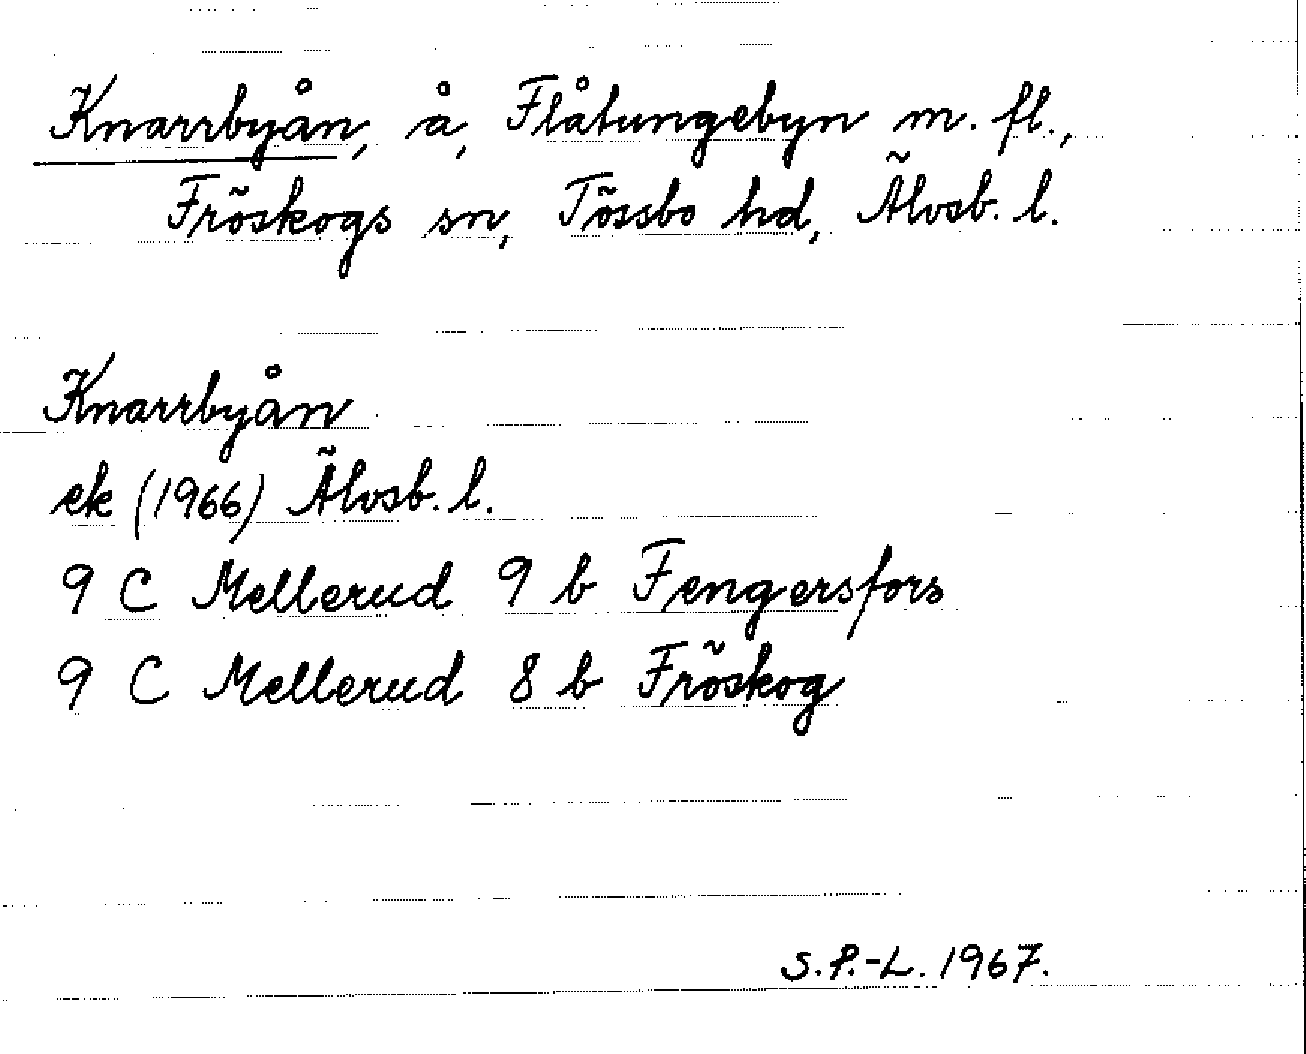 Knarrbyån, å, Flåtungebyn m. fl.,
Fröskogs sn, Tössbo hd, Älvsb. l.
Knarrbyån
ek (1966) Älvsb. l.
9 C Mellerud 9 b Fengersfors
9 C Mellerud 8 b Fröskog
S.P.-L. 1967.